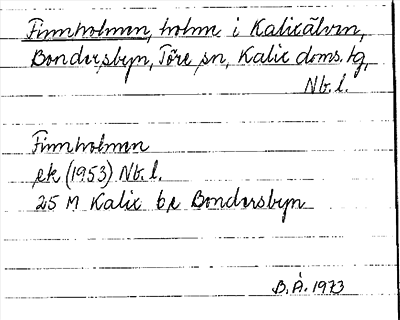 Finnholmen, holme i Kalixälven,
Bondersbyn, Töre sn, Kalix doms. tg,
Nb. l.
Finnholmen
ek (1953) Nb. l.
25 M Kalix be Bondersbyn
B. Å. 1973